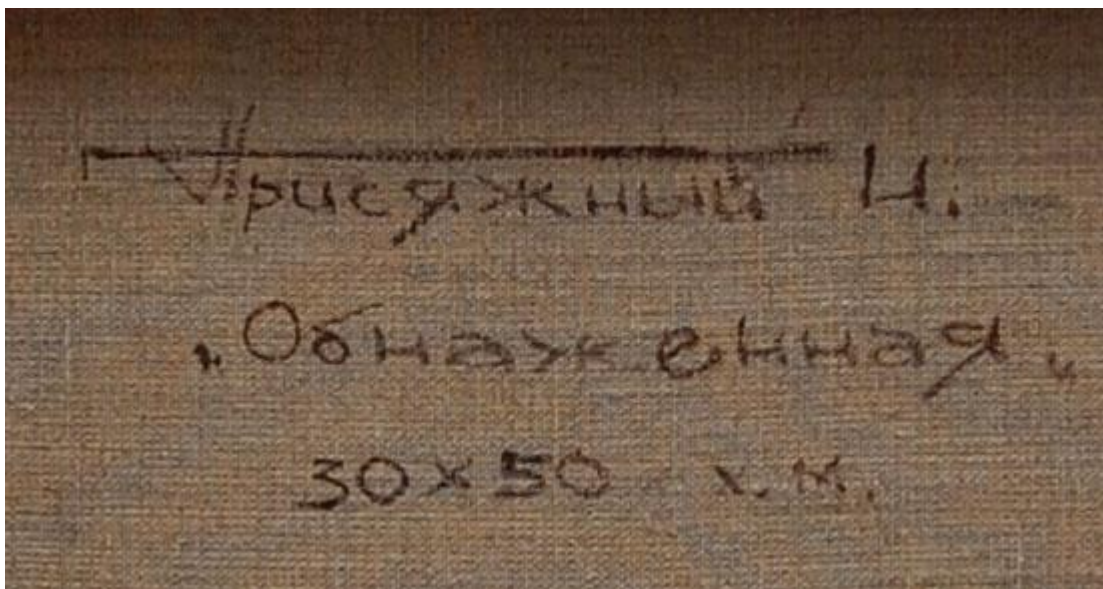 Присяжный И.
„Обнаженная„
30x50 х.м.